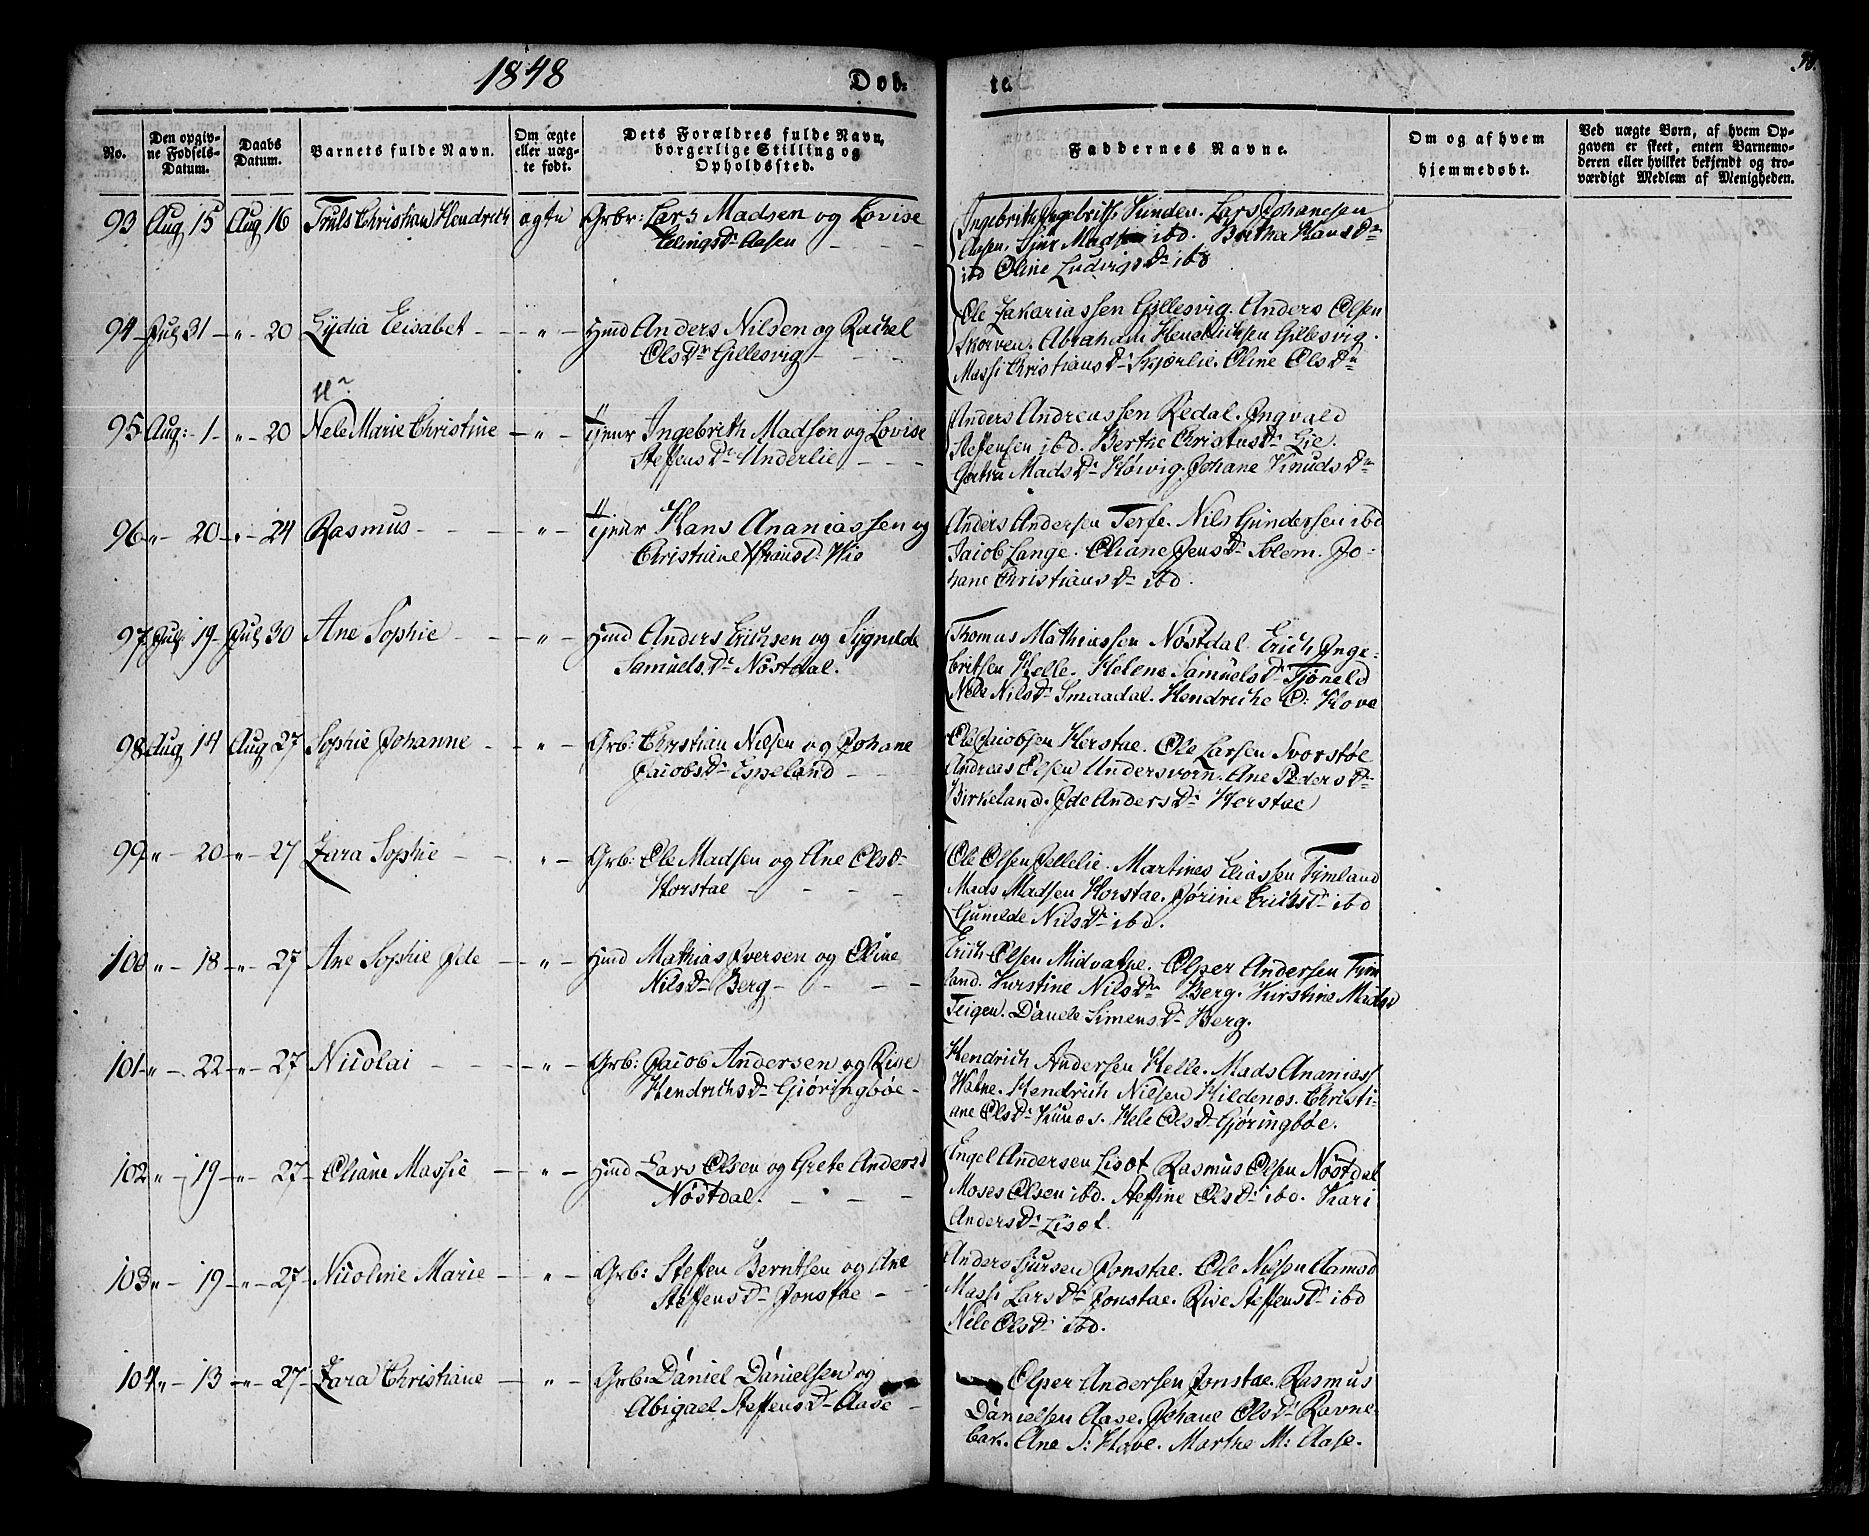 1848
Døb-
te.
No.
Den opgiv-
ne Fødsels-
Datum.
Daabs
Datum.
Barnets fulde Navn.
Om ægte
eller uæg-
te født.
Dets Forældres fulde Navn,
borgerlige Stilling og
Opholdssted.
Faddernes Navne.
Om og af hvem
hjemmedøbt.
Ved uægte Børn, af hvem Op-
gaven er skeet, enten Barnemo-
deren eller hvilket bekjendt og tro-
værdigt Medlem af Menigheden.
93 Aug 15 Aug 16 Truls Christian Hendrich ægte Grbr: Lars Madsen og Lovise
Elingsdr Aasen
Ingebrith Ingebriths Sunden. Lars Johanesen
Aasen. Sjur Madsen ibd. Berthe Hansdr
ibd Oline Ludvigsdr ibd
94 July 31 - " - 20 Lydia Elisabet - " - Hmd Anders Nilsen og Rachel
Olsdr Gillesvig
Ole Zakariassen Gillesvig. Anders Olsen
Skorven. Abraham Hendrichsen Gillesvig.
Massi Christiansdr Skjærlie. Oline Olsdr
95 Aug: 1 - " - 20 Nele Marie Christine - " - Tjener Ingebrith Madsen og Lovise
Steffensdr Underlie
Anders Andreassen Redal. Ingvald
Steffensen ibd. Berthe Christensdr Lie.
Madsdr Høivig. Johane Knudsdr
96 " - 20 - " - 24 Rasmus - " - Tjener Hans Ananiassen og
Christiane Hansdr Wie
Anders Andersen Terfe. Nils Gundersen ibd
Jacob Lange. Oliane Jensdr Solem. Jo-
hane Christiansdr ibd.
97 July 19 - July 30 Ane Sophie - " - Hmd Anders Erichsen og Sygnilde
Samuelsdr Nøstdal.
Thomas Mathiassen Nøstdal. Erich Inge-
britsen Helle. Helene Samuelsdr Tjøneld
Nele Nilsdr Smaadal. Hendriche D: Hove
98 Aug 14 Aug 27 Sophie Johanne - " - Grb: Christian Nilsen og Johane
Jacobsdr Espeland
Ole Jacobsen Horstae. Ole Larsen Svorstøe
Andreas Olsen Undersvorn. Ane Pedersdr
Birkeland. Ide Andersdr Horstae
99 " - 20 - " - 27 Zara Sophie - " - Grb: Ole Madsen og Ane Olsdr
Horstae
Ole Olsen Jellelie. Martines Eliassen Timland
Mads Madsen Horstae. Jørine Erichsdr ibd
Gunilde Nilsdr ibd.
100 " - 18 - " - 27 Ane Sophie Ide - " - Hmd Mathias Iversen og Oline
Nilsdr Berg
Erich Olsen Midvatne. Olper Andersen Tim-
land. Kirstine Nilsdr Berg. Kirstine Madsd
Teigen. Daniele Simensdr Berg.
101 " - 22 - " - 27 Nicolai - " - Grb: Jacob Andersen og Rise
Hendrichsdr Gjøringbøe
Hendrich Andersen Helle. Mads Ananiass
Watne. Hendrich Nilsen Hildenøs. Christi-
ane Olsdr Kunøs. Nele Olsdr Gjøringbøe.
102 " - 19 - " - 27 Oliane Massie - " - Hmd Lars Olsen og Grete Andersd
Nøstdal.
Engel Andersen Lisøt Rasmus Olsen Nøstdal
Moses Olsen ibd. Steffine Olsdr ibd. Kari
Andersdr Lisøt.
103 " - 19 - " - 27 Nicoline Marie - " - Grb: Steffen Berntsen og Ane
Steffensdr Jonstae
Anders Sjursen Jonstae. Ole Nilsen Aamod
Massi Larsdr Jonstae. Rise Steffensdr ibd
Nele Olsdr ibd.
104 " - 13 - " - 27 Zara Christiane - " - Grb: Daniel Danielsen og
Abigael Steffensdr Aase
Olper Andersen Jonstae. Rasmus
Danielsen Aase. Johane Olsdr Ravne-
bak. Ane S: Hove. Marthe M: Aase.